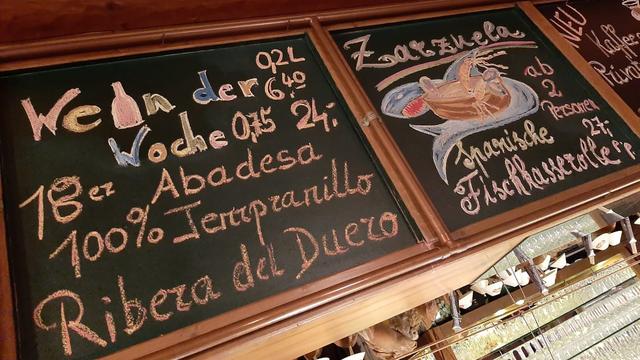 Wein der 0,2L 6,40
Woche 0,75 24,-
18er Abadesa
100% Tempranillo
Ribera del Duero
Zarzuela
ab
2
Personen
27,-
Spanische
Fischkasserolle
NEU
Kaffee